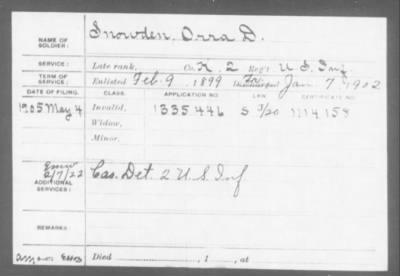 NAME OF SOLDIER: Snowden, Orra D.
SERVICE: Late rank, Co. K, 2 Reg't U S Inf
TERM OF SERVICE: Enlisted Feb. 9, 1899 Discharged Jan 7, 1902
DATE OF FILING. CLASS. APPLICATION NO. LAW. CERTIFICATE NO.
1905 May 4 Invalid, 1335446 1114158
Widow,
Minor,
2/7/22
ADDITIONAL SERVICES: Cas. Det. 2 U.S. Inf
REMARKS:
Died , 1 , at